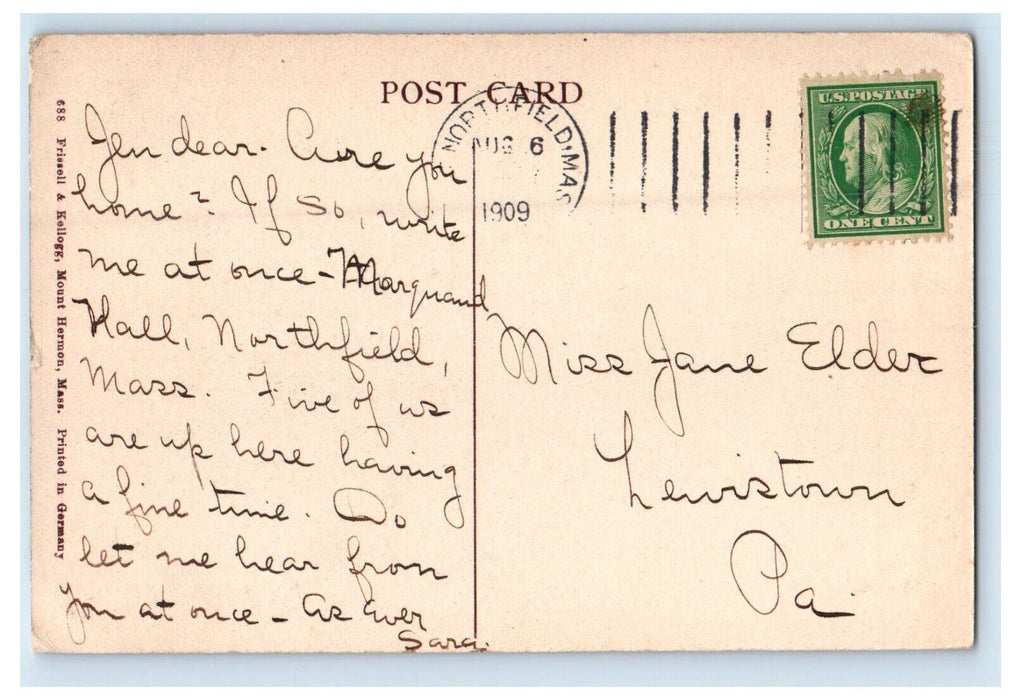 POST CARD
NORTHFIELD, MAS
AUG 6
1909
U.S. POSTAGE
ONE CENT
688 Frissell & Kellogg, Mount Hermon, Mass. Printed in Germany
Jen dear. Are you
home? If so, write
me at once - Marquand
Hall, Northfield,
Mass. Five of us
are up here having
a fine time. Do
let me hear from
you at once - As ever
Sara.
Miss Jane Elder
Lewistown
Pa.